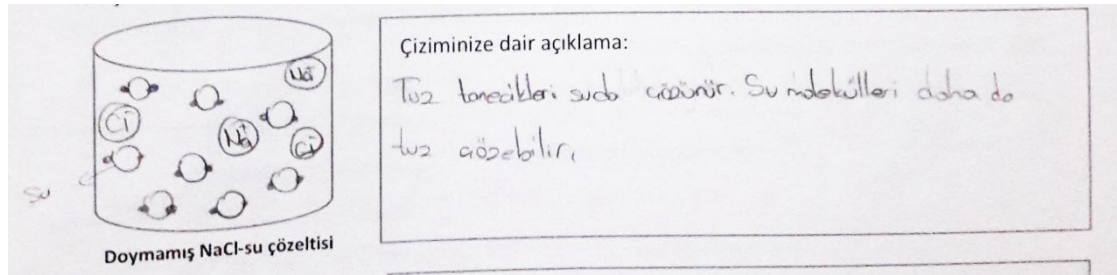 Na⁺
Cl⁻
Na⁺
Cl⁻
su
Doymamış NaCl-su çözeltisi
Çiziminize dair açıklama:
Tuz tanecikleri suda çözünür. Su molekülleri daha da
tuz çözebilir.